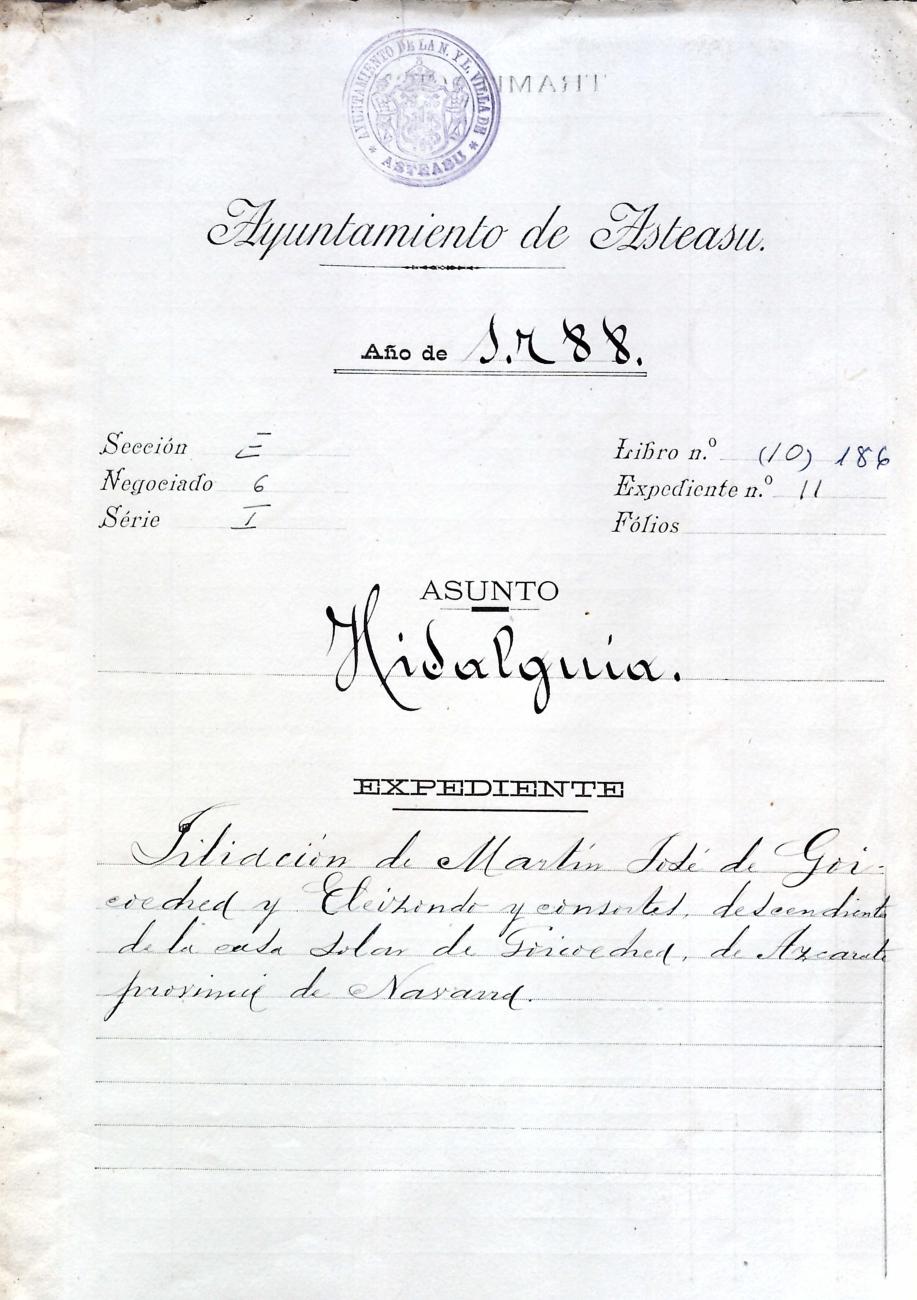 AYUNTAMIENTO DE LA N. Y L. VILLA DE
* ASTEASU *
TRAMI
Ayuntamiento de Asteasu.
Año de 1.788.
Sección E
Negociado 6
Série I
Libro n.º (10) 186
Expediente n.º 11
Fólios
ASUNTO
Hidalguía.
EXPEDIENTE
Filiación de Martín José de Goi-
coechea y Eleizondo y consortes, descendiente
de la casa solar de Goicoechea, de Azcarate
provincia de Navarra.